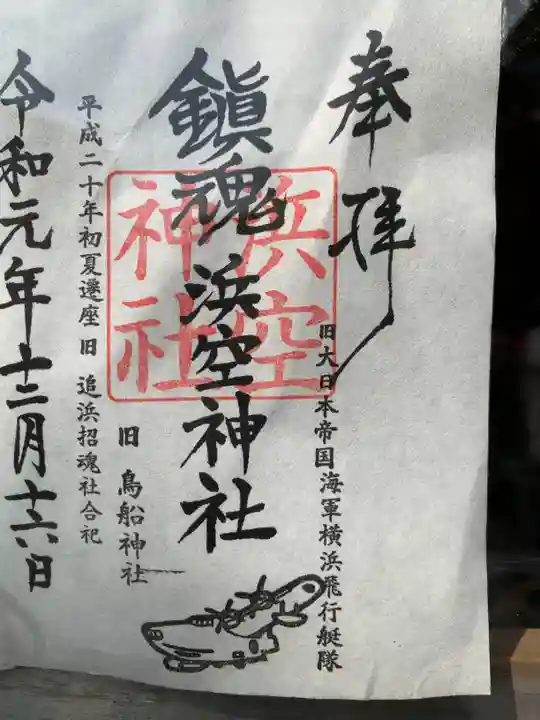 奉拝
旧大日本帝国海軍横浜飛行艇隊
鎮魂浜空神社
浜空
神社
旧鳥船神社
平成二十年初夏遷座旧追浜招魂社合祀
令和元年十二月十六日